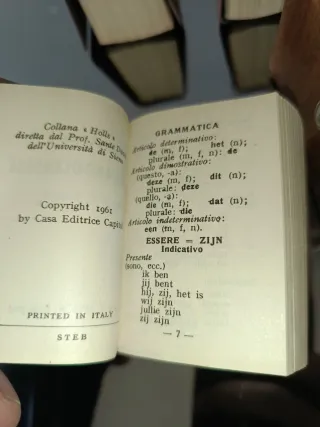 Collana « Holls »
diretta dal Prof. Sante
dell'Università di
Copyright 1961
by Casa Editrice
PRINTED IN ITALY
STEB
GRAMMATICA
Articolo determinativo:
de (m, f); het (n);
plurale (m, f, n): de
Articolo dimostrativo:
(questo, -a):
deze (m, f); dit (n);
plurale: deze
(quello, -a):
die (m, f); dat (n);
plurale: die
Articolo indeterminativo:
een (m, f, n).
ESSERE = ZIJN
Indicativo
Presente
(sono, ecc.)
ik ben
jij bent
hij, zij, het is
wij zijn
jullie zijn
zij zijn
— 7 —